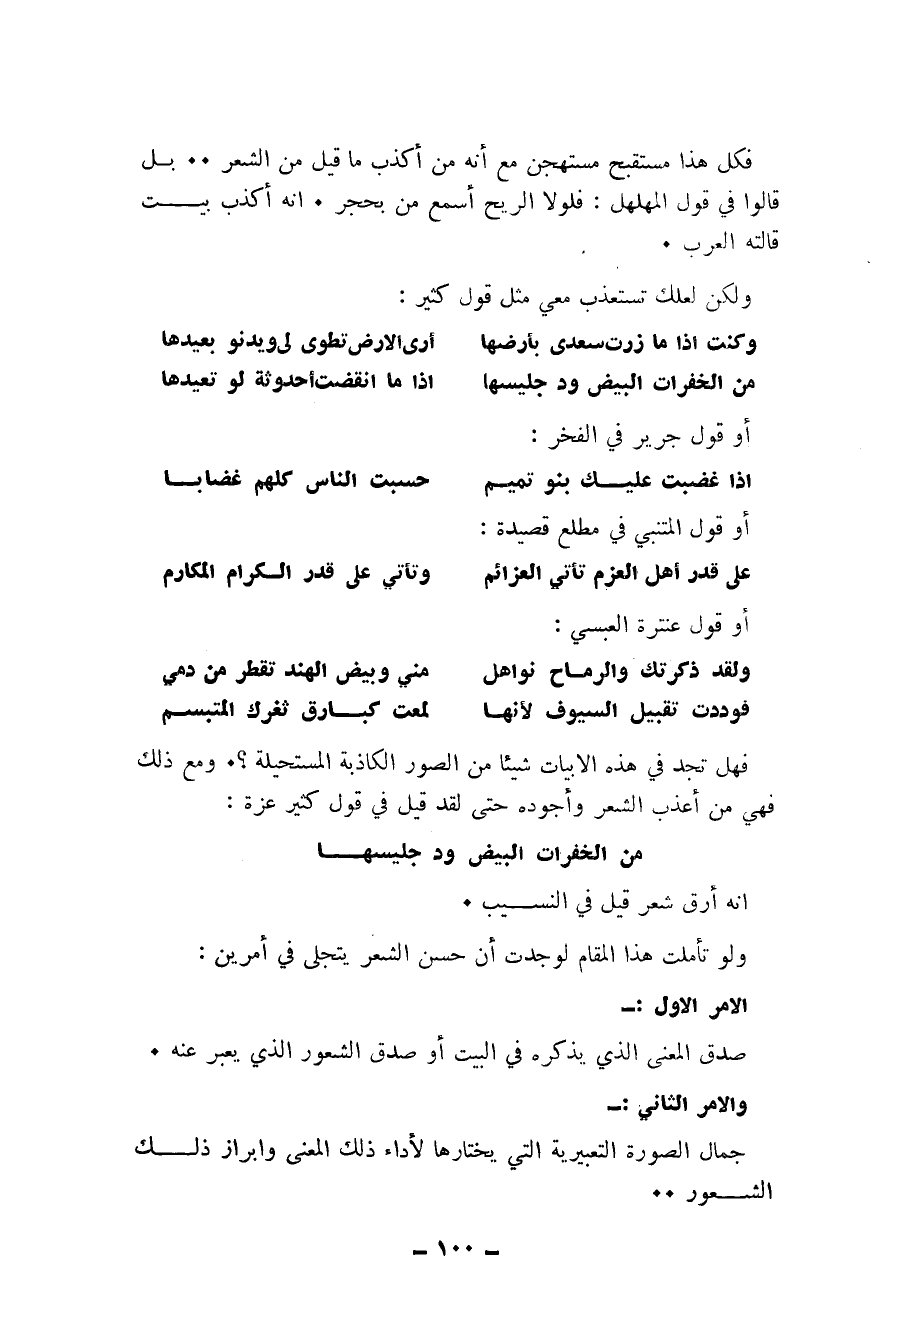 فكل هذا مستقبح مستهجن مع أنه من أكذب ما قيل من الشعر ٠٠ بـل
قالوا في قول المهلهل : فلولا الريح أسمع من بحجر ٠ انه أكذب بيـــت
قالته العرب ٠
ولكن لعلك تستعذب معي مثل قول كثير :
وكنت اذا ما زرت سعدى بأرضها أرى الارض تطوى لي ويدنو بعيدها
من الخفرات البيض ود جليسها اذا ما انقضت أحدوثة لو تعيدها
أو قول جرير في الفخر :
اذا غضبت عليـــك بنو تميـم حسبت الناس كلهم غضابـا
أو قول المتنبي في مطلع قصيدة :
على قدر أهل العزم تأتي العزائم وتأتي على قدر الـكرام المكارم
أو قول عنترة العبسي :
ولقد ذكرتك والرمـاح نواهل مني وبيض الهند تقطر من دمي
فوددت تقبيل السيوف لأنهـا لمعت كبـــارق ثغرك المتبســم
فهل تجد في هذه الابيات شيئا من الصور الكاذبة المستحيلة ؟٠ ومع ذلك
فهي من أعذب الشعر وأجوده حتى لقد قيل في قول كثير عزة :
من الخفرات البيض ود جليسهـــا
انه أرق شعر قيل في النســـيب ٠
ولو تأملت هذا المقام لوجدت أن حسن الشعر يتجلى في أمرين :
الامر الاول :ـ
صدق المعنى الذي يذكره في البيت أو صدق الشعور الذي يعبر عنه ٠
والامر الثاني :ـ
جمال الصورة التعبيرية التي يختارها لأداء ذلك المعنى وابراز ذلـــك
الشـــعور ٠٠
ـ ١٠٠ ـ